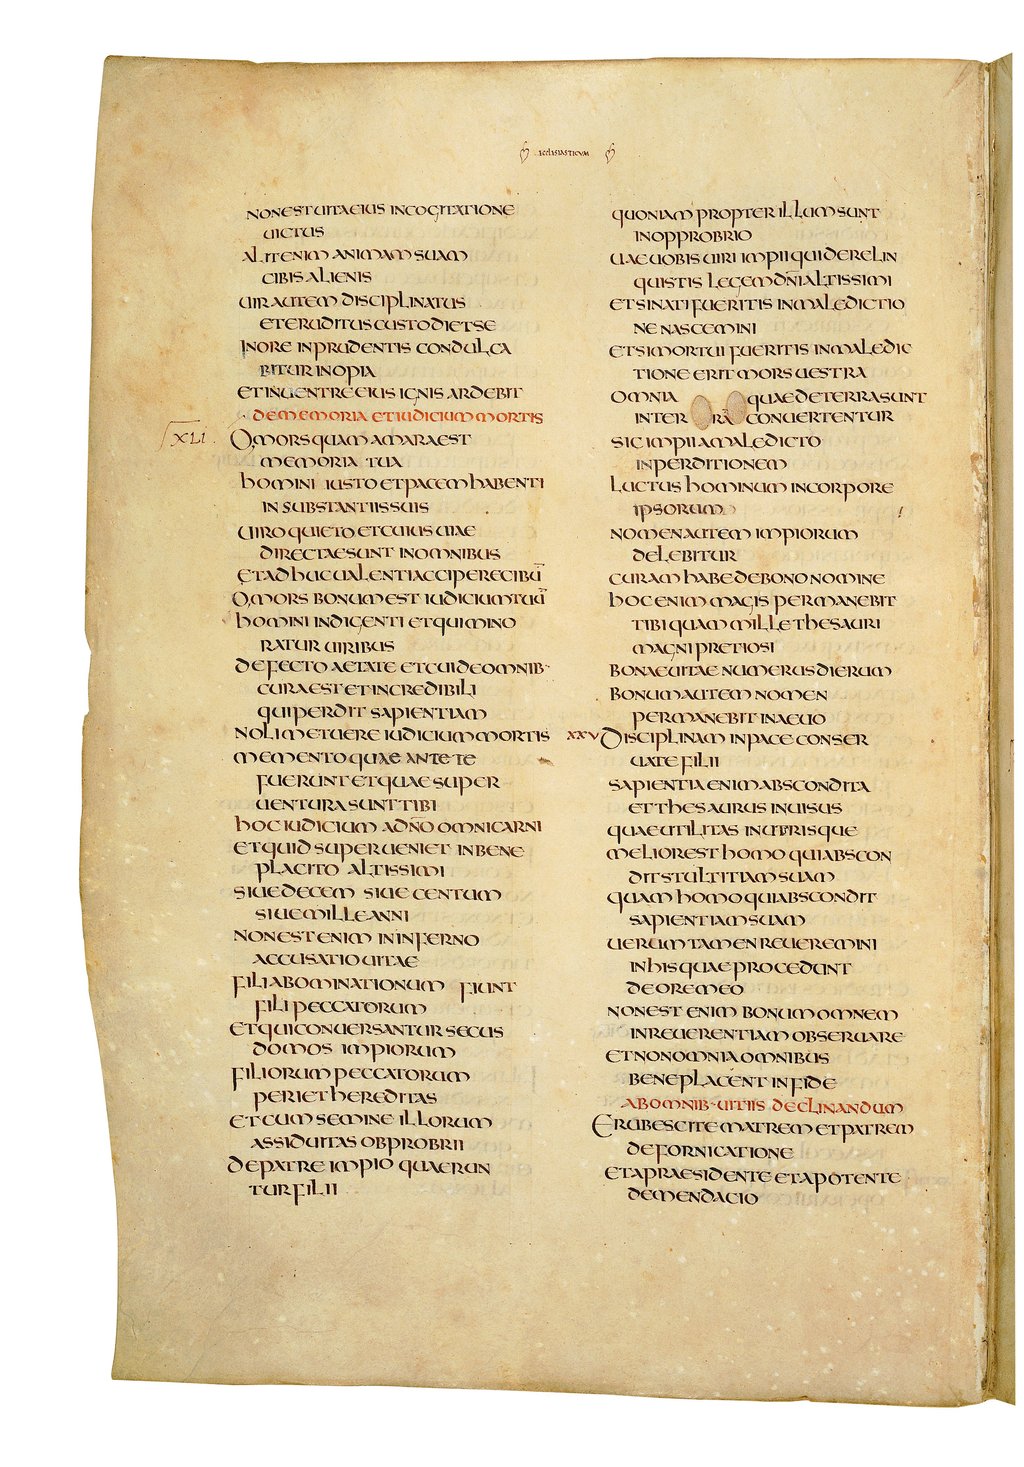 ECCLESIASTICUM
NONEST UITAEIUS INCOGITATIONE
UICTUS
ALIT ENIM ANIMAM SUAM
CIBIS ALIENIS
UIR AUTEM DISCIPLINATUS
ET ERUDITUS CUSTODIET SE
INORE INPRUDENTIS CONDULCA
BITUR INOPIA
ET INUENTRE EIUS IGNIS ARDEBIT
DE MEMORIA ET IUDICIUM MORTIS
XLI
O MORS QUAM AMARA EST
MEMORIA TUA
HOMINI IUSTO ET PACEM HABENTI
IN SUBSTANTIIS SUIS
UIRO QUIETO ET CUIUS UIAE
DIRECTAE SUNT INOMNIBUS
ET ADHUC UALENTI ACCIPERE CIBŪ
O MORS BONUM EST IUDICIUM TUŪ
HOMINI INDIGENTI ET QUI MINO
RATUR UIRIBUS
DEFECTO AETATE ET CUI DE OMNIB·
CURA EST ET INCREDIBILI
QUI PERDIT SAPIENTIAM
NOLI METUERE IUDICIUM MORTIS
MEMENTO QUAE ANTE TE
FUERUNT ET QUAE SUPER
UENTURA SUNT TIBI
HOC IUDICIUM A DN̄O OMNI CARNI
ET QUID SUPERUENIET IN BENE
PLACITO ALTISSIMI
SIUE DECEM SIUE CENTUM
SIUE MILLE ANNI
NONEST ENIM IN INFERNO
ACCUSATIO UITAE
FILI ABOMINATIONUM FIUNT
FILI PECCATORUM
ET QUI CONUERSANTUR SECUS
DOMOS IMPIORUM
FILIORUM PECCATORUM
PERIET HEREDITAS
ET CUM SEMINE ILLORUM
ASSIDUITAS OBPROBRII
DE PATRE IMPIO QUAERUN
TUR FILII
QUONIAM PROPTER ILLUM SUNT
IN OPPROBRIO
UAE UOBIS UIRI IMPII QUI DERELIN
QUISTIS LEGEM DN̄I ALTISSIMI
ET SI NATI FUERITIS IN MALEDICTIO
NE NASCEMINI
ET SI MORTUI FUERITIS IN MALEDIC
TIONE ERIT MORS UESTRA
OMNIA QUAE DE TERRA SUNT
INTERRA CONUERTENTUR
SIC IMPII A MALEDICTO
IN PERDITIONEM
LUCTUS HOMINUM IN CORPORE
IPSORUM
NOMEN AUTEM IMPIORUM
DELEBITUR
CURAM HABE DE BONO NOMINE
HOC ENIM MAGIS PERMANEBIT
TIBI QUAM MILLE THESAURI
MAGNI PRETIOSI
BONAE UITAE NUMERUS DIERUM
BONUM AUTEM NOMEN
PERMANEBIT IN AEUO
XXV DISCIPLINAM IN PACE CONSER
UATE FILII
SAPIENTIA ENIM ABSCONDITA
ET THESAURUS INUISUS
QUAE UTILITAS IN UTRISQUE
MELIOR EST HOMO QUI ABSCON
DIT STULTITIAM SUAM
QUAM HOMO QUI ABSCONDIT
SAPIENTIAM SUAM
UERUM TAMEN REUEREMINI
IN HIS QUAE PROCEDUNT
DE ORE MEO
NONEST ENIM BONUM OMNEM
INREUERENTIAM OBSERUARE
ET NON OMNIA OMNIBUS
BENE PLACENT IN FIDE
AB OMNIB· UITIIS DECLINANDUM
ERUBESCITE MATREM ET PATREM
DE FORNICATIONE
ET A PRAESIDENTE ET A POTENTE
DE MENDACIO